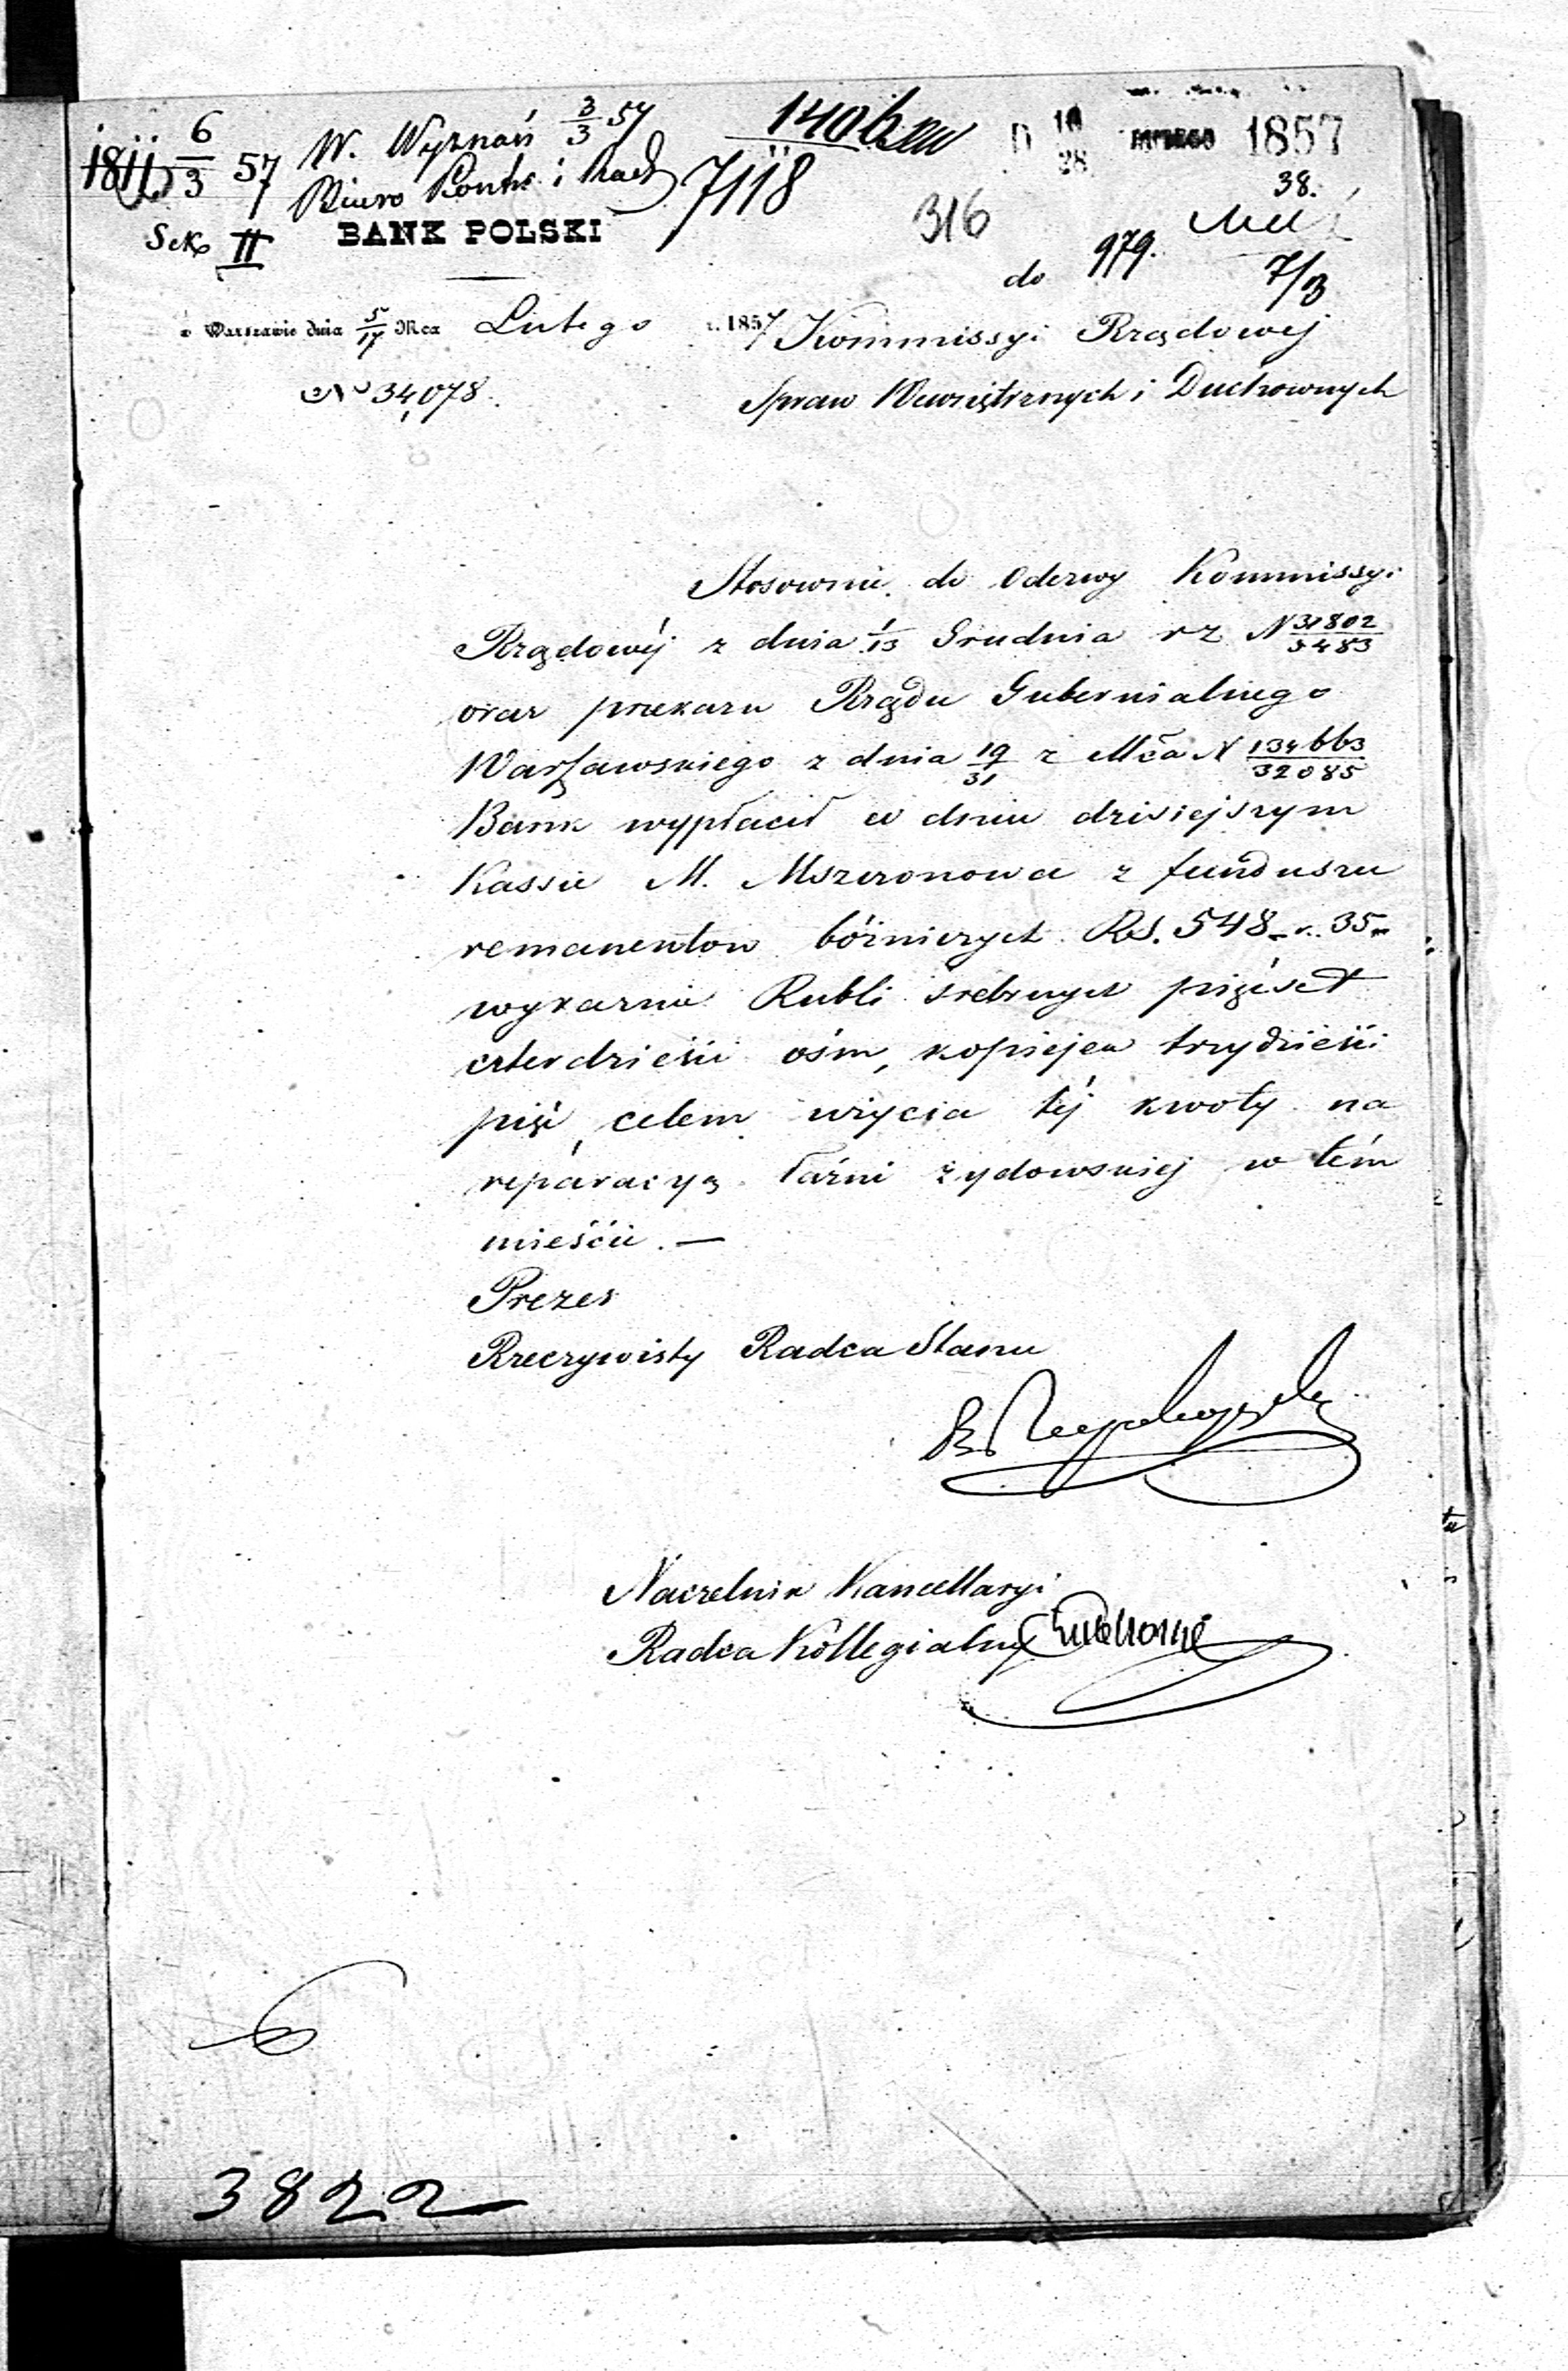 6/3 57 W. Wyznań 3/3 57
Biuro Kontr. i Rach
7118
D 16/28 LUTEGO 1857
38.
Sek II BANK POLSKI
316
do 979.
7/3
w Warszawie dnia 5/17 Mca Lutego r. 1857
Kommissyi Rządowej
No 34,078.
Spraw Wewnętrznych i Duchownych
Stosownie do Odezwy Kommissyi
Rządowéj z dnia 1/13 Grudnia rz N 31802/5483
oraz przekazu Rządu Gubernialnego
Warszawskiego z dnia 19/31 z Mca N 134663/32085
Bank wypłacił w dniu dzisiejszym
Kassie M. Mszczonowa z funduszu
remanentow bóżniczych Rs. 548 k. 35
wyraznie Rubli srebrnych pięćset
czterdzieści ośm, kopiejek trzydzieści
pięć, celem użycia téj kwoty na
reparacyą łaźni żydowskiej w tém
mieście. —
Prezes
Rzeczywisty Radca Stanu
Naczelnik Kancellaryi
Radca Kollegialny
3822